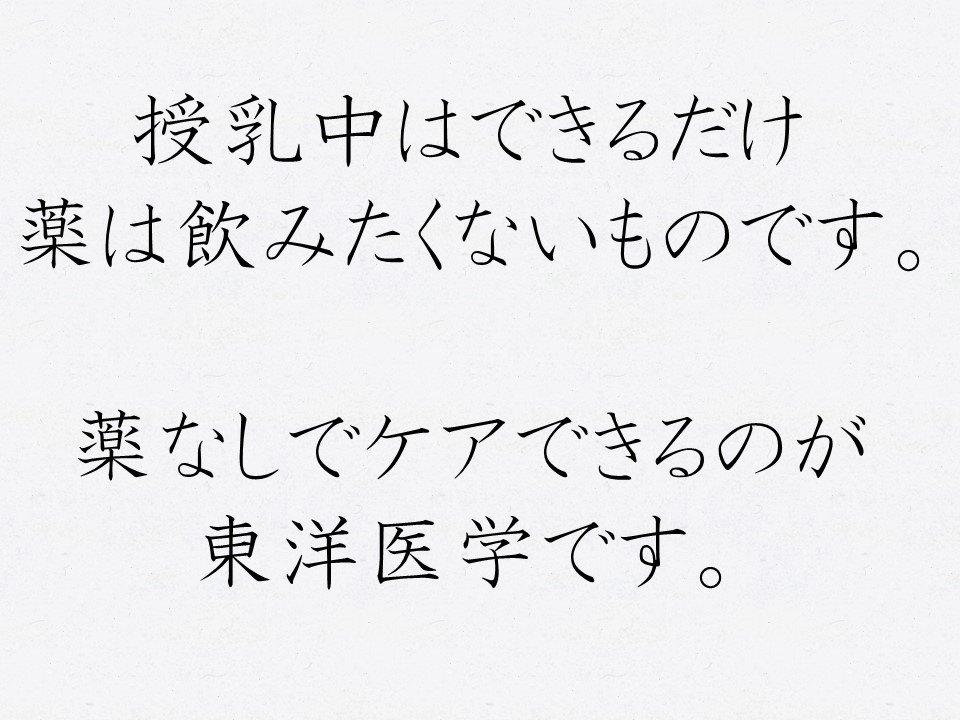 授乳中はできるだけ
薬は飲みたくないものです。
薬なしでケアできるのが
東洋医学です。